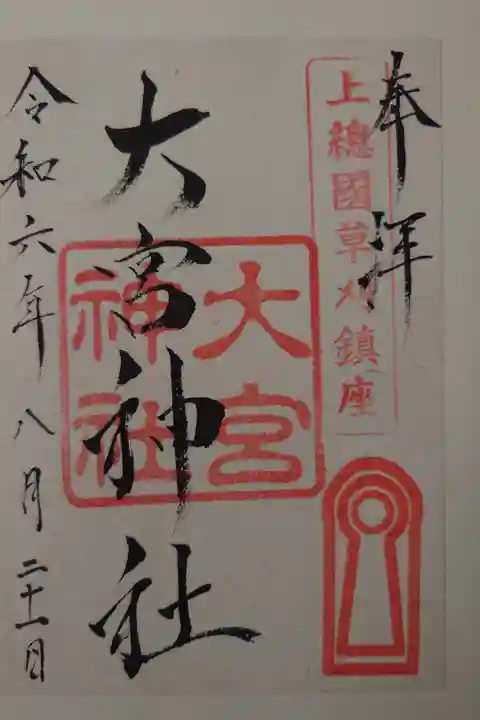 奉拝
上總國草刈鎮座
大宮神社
大宮
神社
令和六年八月二十一日